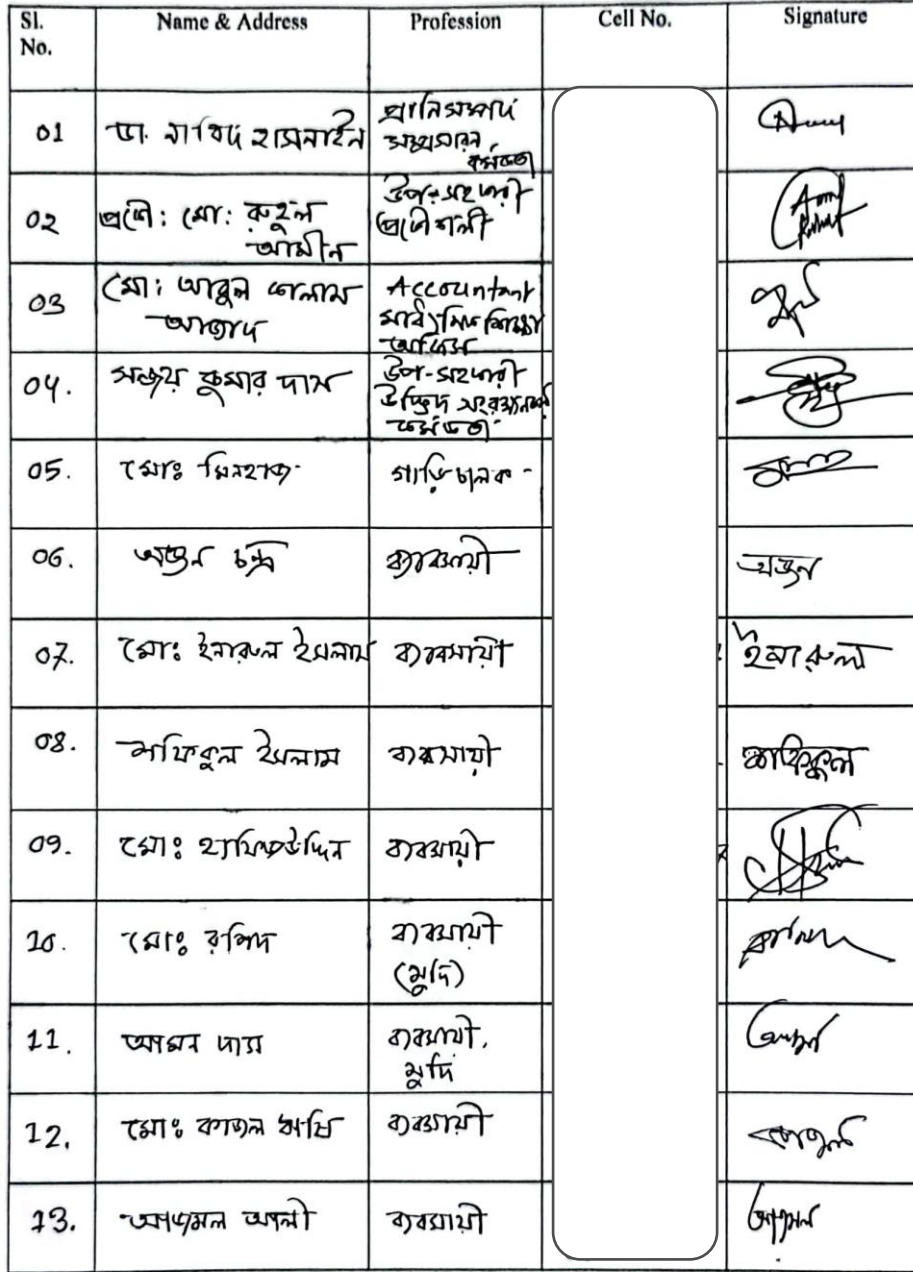 Sl. No. Name & Address Profession Cell No. Signature
01 ডা. নাবিদ হাসনাইন প্রানিসম্পদ সম্প্রসারন কর্মকর্তা
02 প্রকৌ: মো: রুহুল আমীন উপ-সহকারী প্রকৌশলী
03 মো: আবুল কালাম আজাদ Accountant মাধ্যমিক শিক্ষা অফিস
04. সঞ্জয় কুমার দাস উপ-সহকারী উদ্ভিদ সংরক্ষন কর্মকর্তা
05. মোঃ মিনহাজ গাড়ি চালক
06. চন্দ্র ব্যাবসায়ী
07. মোঃ ইনারুল ইসলাম ব্যবসায়ী ইনারুল
08. শফিকুল ইসলাম ব্যবসায়ী শফিকুল
09. মোঃ হাফিজউদ্দিন ব্যবসায়ী
10. মোঃ রশিদ ব্যবসায়ী (মুদি)
11. আমন দাস ব্যবসায়ী, মুদি
12. মোঃ কাজল ব্যবসায়ী
13. আজমল আলী ব্যবসায়ী আজমল